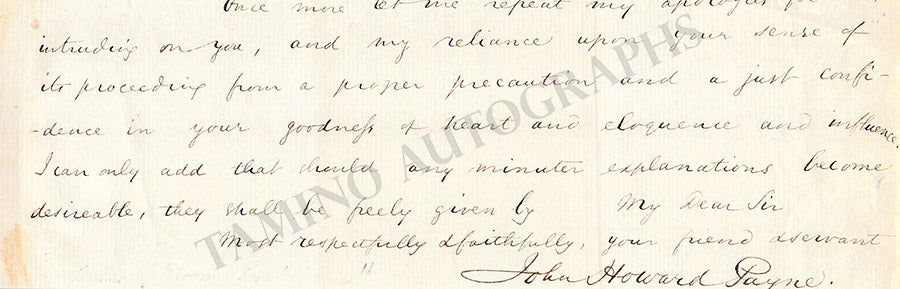 Once more let me repeat my apologies for
intruding on you, and my reliance upon your sense of
its proceeding from a proper precaution and a just confi-
-dence in your goodness of heart and eloquence and influence.
I can only add that should any minuter explanations become
desireable, they shall be freely given by My Dear Sir
Most respectfully & faithfully, your friend & servant
John Howard Payne.
TAMINO AUTOGRAPHS